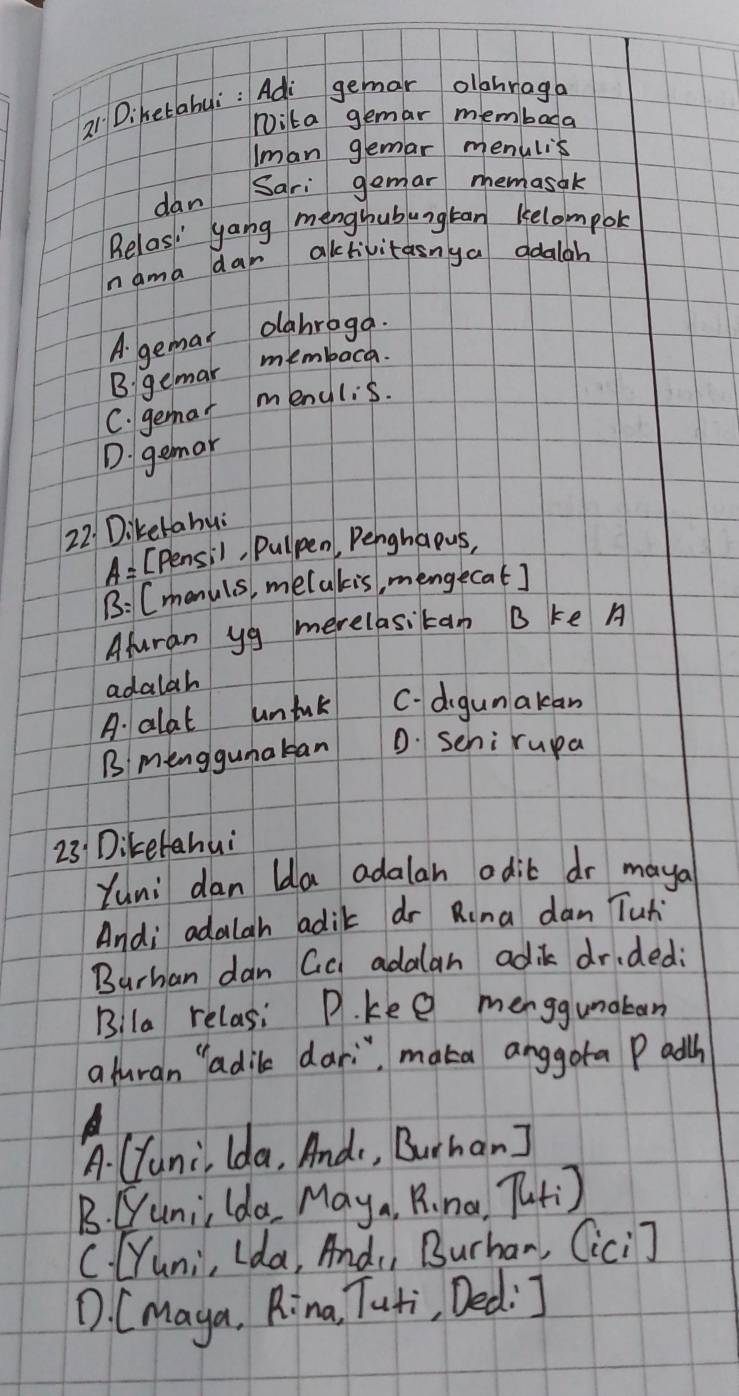 21. Diketahui : Adi gemar olahraga
Dita gemar membaca
Iman gemar menulis
dan Sari gemar memasak
Relasi yang menghubungkan kelompok
nama dan aktivitasnya adalah
A. gemar olahraga.
B. gemar membaca.
C. gemar menulis.
D. gemar
22. Diketahui
A = [Pensil, Pulpen, Penghapus,
B = [menuls, melukis, mengecat]
Aturan yg merelasikan B ke A
adalah
A. alat untuk C. digunakan
B menggunakan D. seni rupa
23. Diketahui
Yuni dan Ida adalah adik dr maya
Andi adalah adik dr Rina dan Tuti
Burhan dan Cici adalah adik dr. dedi
Bila relasi P. ke Q menggunakan
aturan "adik dari", maka anggota P adlh
A. [Yuni, Ida, Andi, Burhan]
B. [Yuni, Ida, Maya, Rina, Tuti)
C. [Yuni, Ida, Andi, Burhan, Cici]
D. [Maya, Rina, Tuti, Dedi]